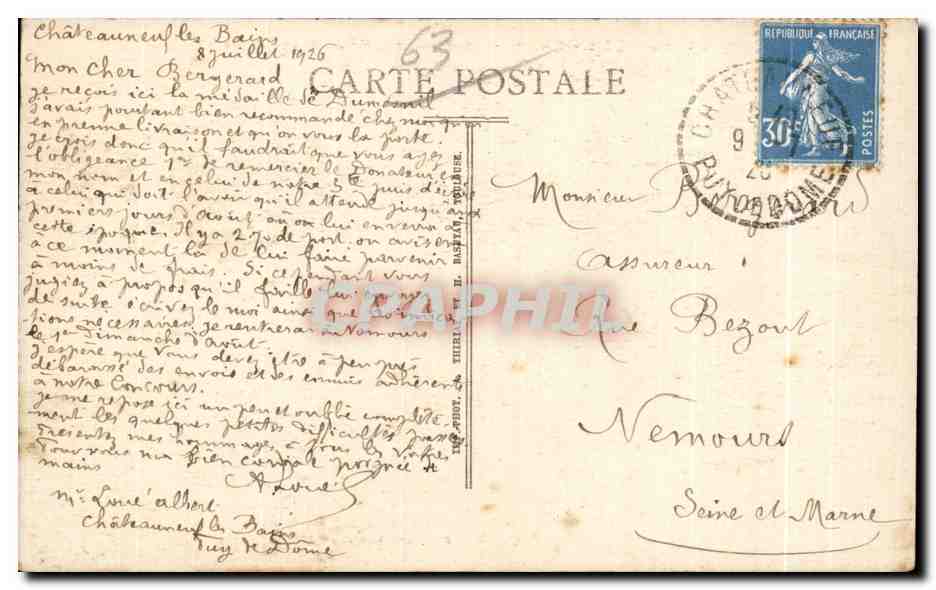 Châteauneuf les Bains
8 juillet 1926
Mon Cher Bergerard
je reçois ici la médaille de Dumesnil
j'avais pourtant bien recommandé chez moi qu'on
en prenne livraison et qu'on vous la porte
je crois donc qu'il faudrait que vous ayez
l'obligeance 1º de remercier le Donateur en
mon nom et en celui de notre
à celui qui doit l'avoir qu'il attende jusqu'aux
premiers jours d'août où on lui enverra à
cette époque. Il y a de port, on avisera
à ce moment là de lui faire parvenir
à moins de frais. Si cependant vous
jugiez à propos qu'il faille lui envoyer
de suite écrivez le moi ainsi que
tions nécessaires, je rentrerai à Nemours
le 1er dimanche d'août.
J'espère que vous devez être à peu près
débarassé des envois et des ennuis adhérents
à notre Concours.
je me repose ici un peu et oublie complète-
ment les quelques petites difficultés passées
Présentez mes hommages à tous les vôtres
Pour vous ma bien cordiale poignée de
mains
A. Loué
Mr Loué Albert
Châteauneuf les Bains
Puy de Dôme
63
CARTE POSTALE
IMP. PHOT. THIRIAT ET H. BASUYAU, TOULOUSE.
REPUBLIQUE FRANÇAISE
30c
POSTES
CHATEAUNEUF
9
26
PUY-DE-DOME
Monsieur
Assureur
Rue Bezout
Nemours
Seine et Marne
CRAPHIL